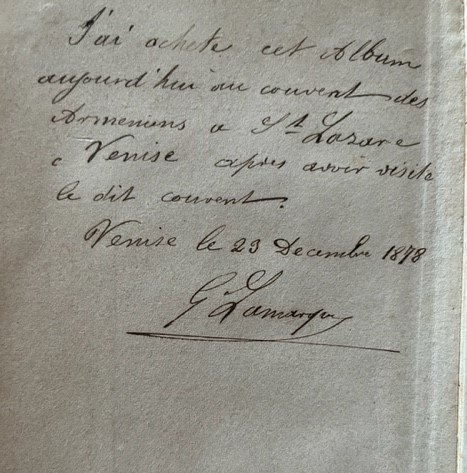 J'ai acheté cet Album
aujourd'hui au couvent des
Armeniens a St Lazare
a Venise apres avoir visité
le dit couvent.
Venise le 23 Decembre 1878
G. Lamarque